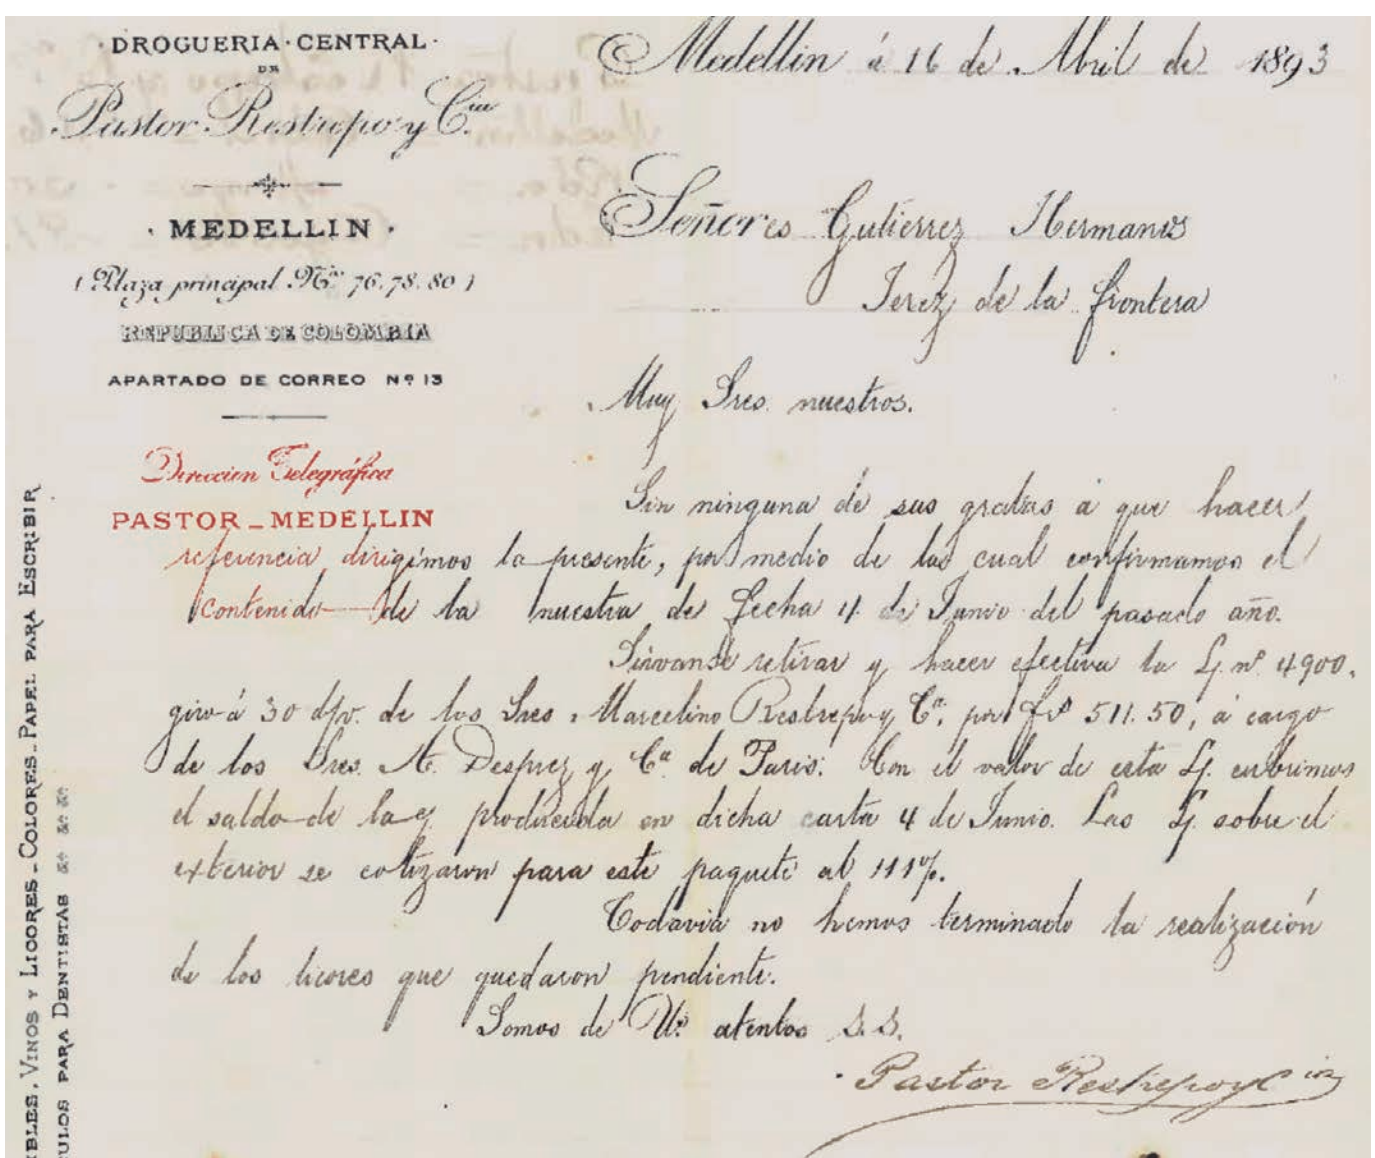 · DROGUERIA · CENTRAL ·
DE
Pastor Restrepo y C.ia
· MEDELLIN ·
( Plaza principal Nos 76. 78. 80 )
REPUBLICA DE COLOMBIA
APARTADO DE CORREO Nº 13
Direccion Telegráfica
PASTOR _ MEDELLIN
BLES, VINOS Y LICORES _ COLORES _ PAPEL PARA ESCRIBIR
CULOS PARA DENTISTAS &ª &ª &ª
Medellin á 16 de Abril de 1893
Señores Gutierrez Hermanos
Jerez de la frontera
Muy Sres. nuestros.
Sin ninguna de sus gratas á que hacer
referencia dirigimos la presente, por medio de la cual confirmamos el
contenido de la nuestra de fecha 4 de Junio del pasado año.
Sirvanse retirar y hacer efectiva la L. nº 4900.
giro á 30 d/v. de los Sres. Marcelino Restrepo y Cª. por frs 511.50, á cargo
de los Sres. A. Desprez y Cª de Paris. Con el valor de esta L. cubrimos
el saldo de la producida en dicha carta 4 de Junio. Las L. sobre el
exterior se cotizaron para este paquete al 111%.
Todavia no hemos terminado la realización
de los licores que quedaron pendiente.
Somos de Us. atentos S. S.
Pastor Restrepo y Cia